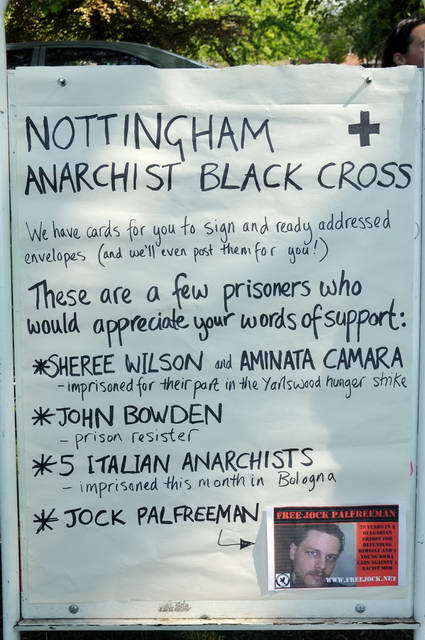 NOTTINGHAM
ANARCHIST BLACK CROSS
We have cards for you to sign and ready addressed
envelopes (and we'll even post them for you!)
These are a few prisoners who
would appreciate your words of support:
*SHEREE WILSON and AMINATA CAMARA
- imprisoned for their part in the Yarlswood hunger strike
*JOHN BOWDEN
- prison resister
*5 ITALIAN ANARCHISTS
- imprisoned this month in Bologna
*JOCK PALFREEMAN
FREE JOCK PALFREEMAN
20 YEARS IN A
BULGARIAN
PRISON FOR
DEFENDING
HIMSELF AND 2
YOUNG ROMA
LADS AGAINST A
RACIST MOB
WWW.FREEJOCK.NET